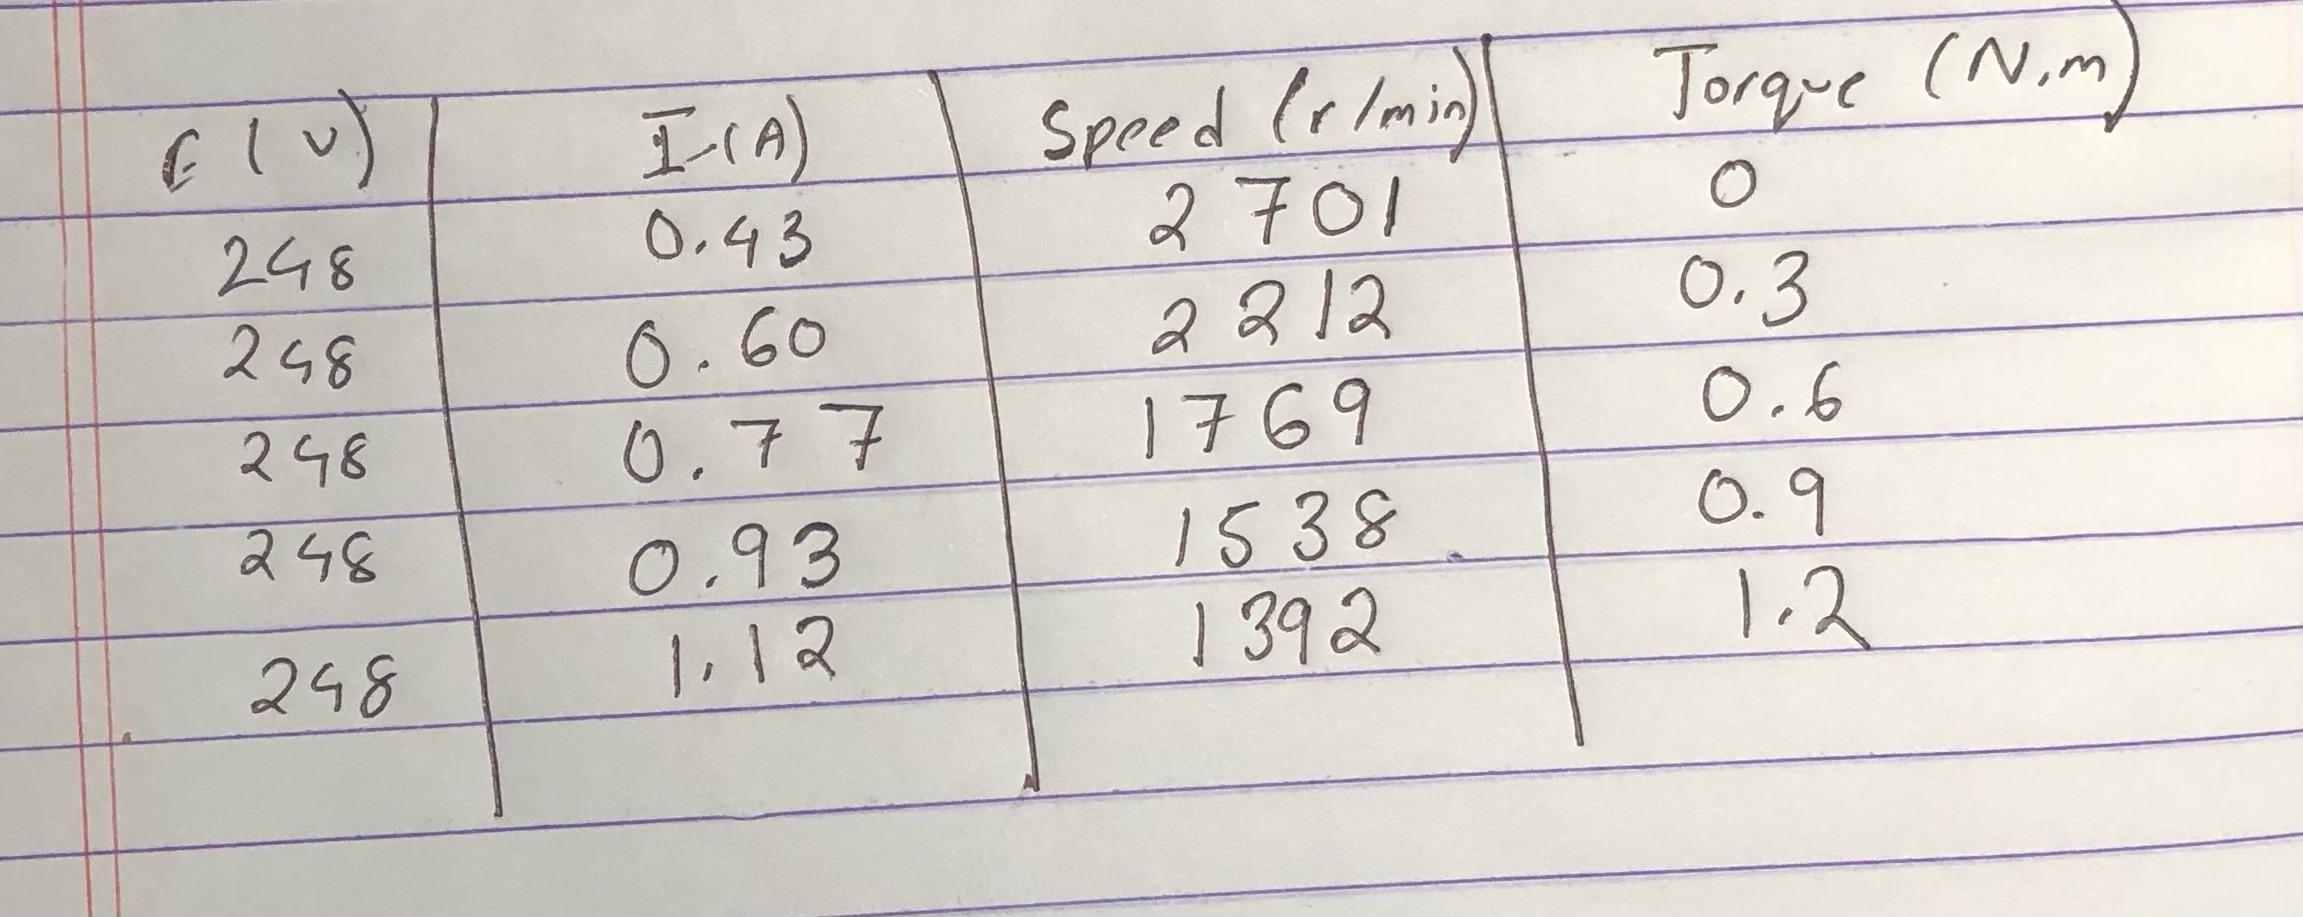 E (V) I (A) Speed (r/min) Torque (N.m)
248 0.43 2701 0
248 0.60 2212 0.3
248 0.77 1769 0.6
248 0.93 1538 0.9
248 1.12 1392 1.2